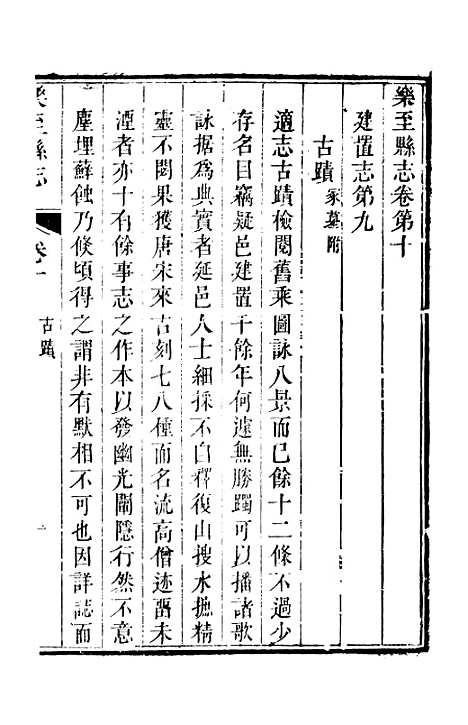 樂至縣志卷第十
建置志第九
古蹟冢墓附
適志古蹟檢閱舊乘圖詠八景而已餘十二條不過少
存名目竊疑邑建置千餘年何遽無勝躅可以播諸歌
詠据爲典實者延邑人士細採不自釋復山搜水摭精
靈不閟果獲唐宋來古刻七八種而名流高僧迹畱未
湮者亦十有餘事志之作本以發幽光闡隱行然不意
塵埋蘚蝕乃倏頃得之謂非有默相不可也因詳誌而
樂至縣志
卷十
古蹟
一